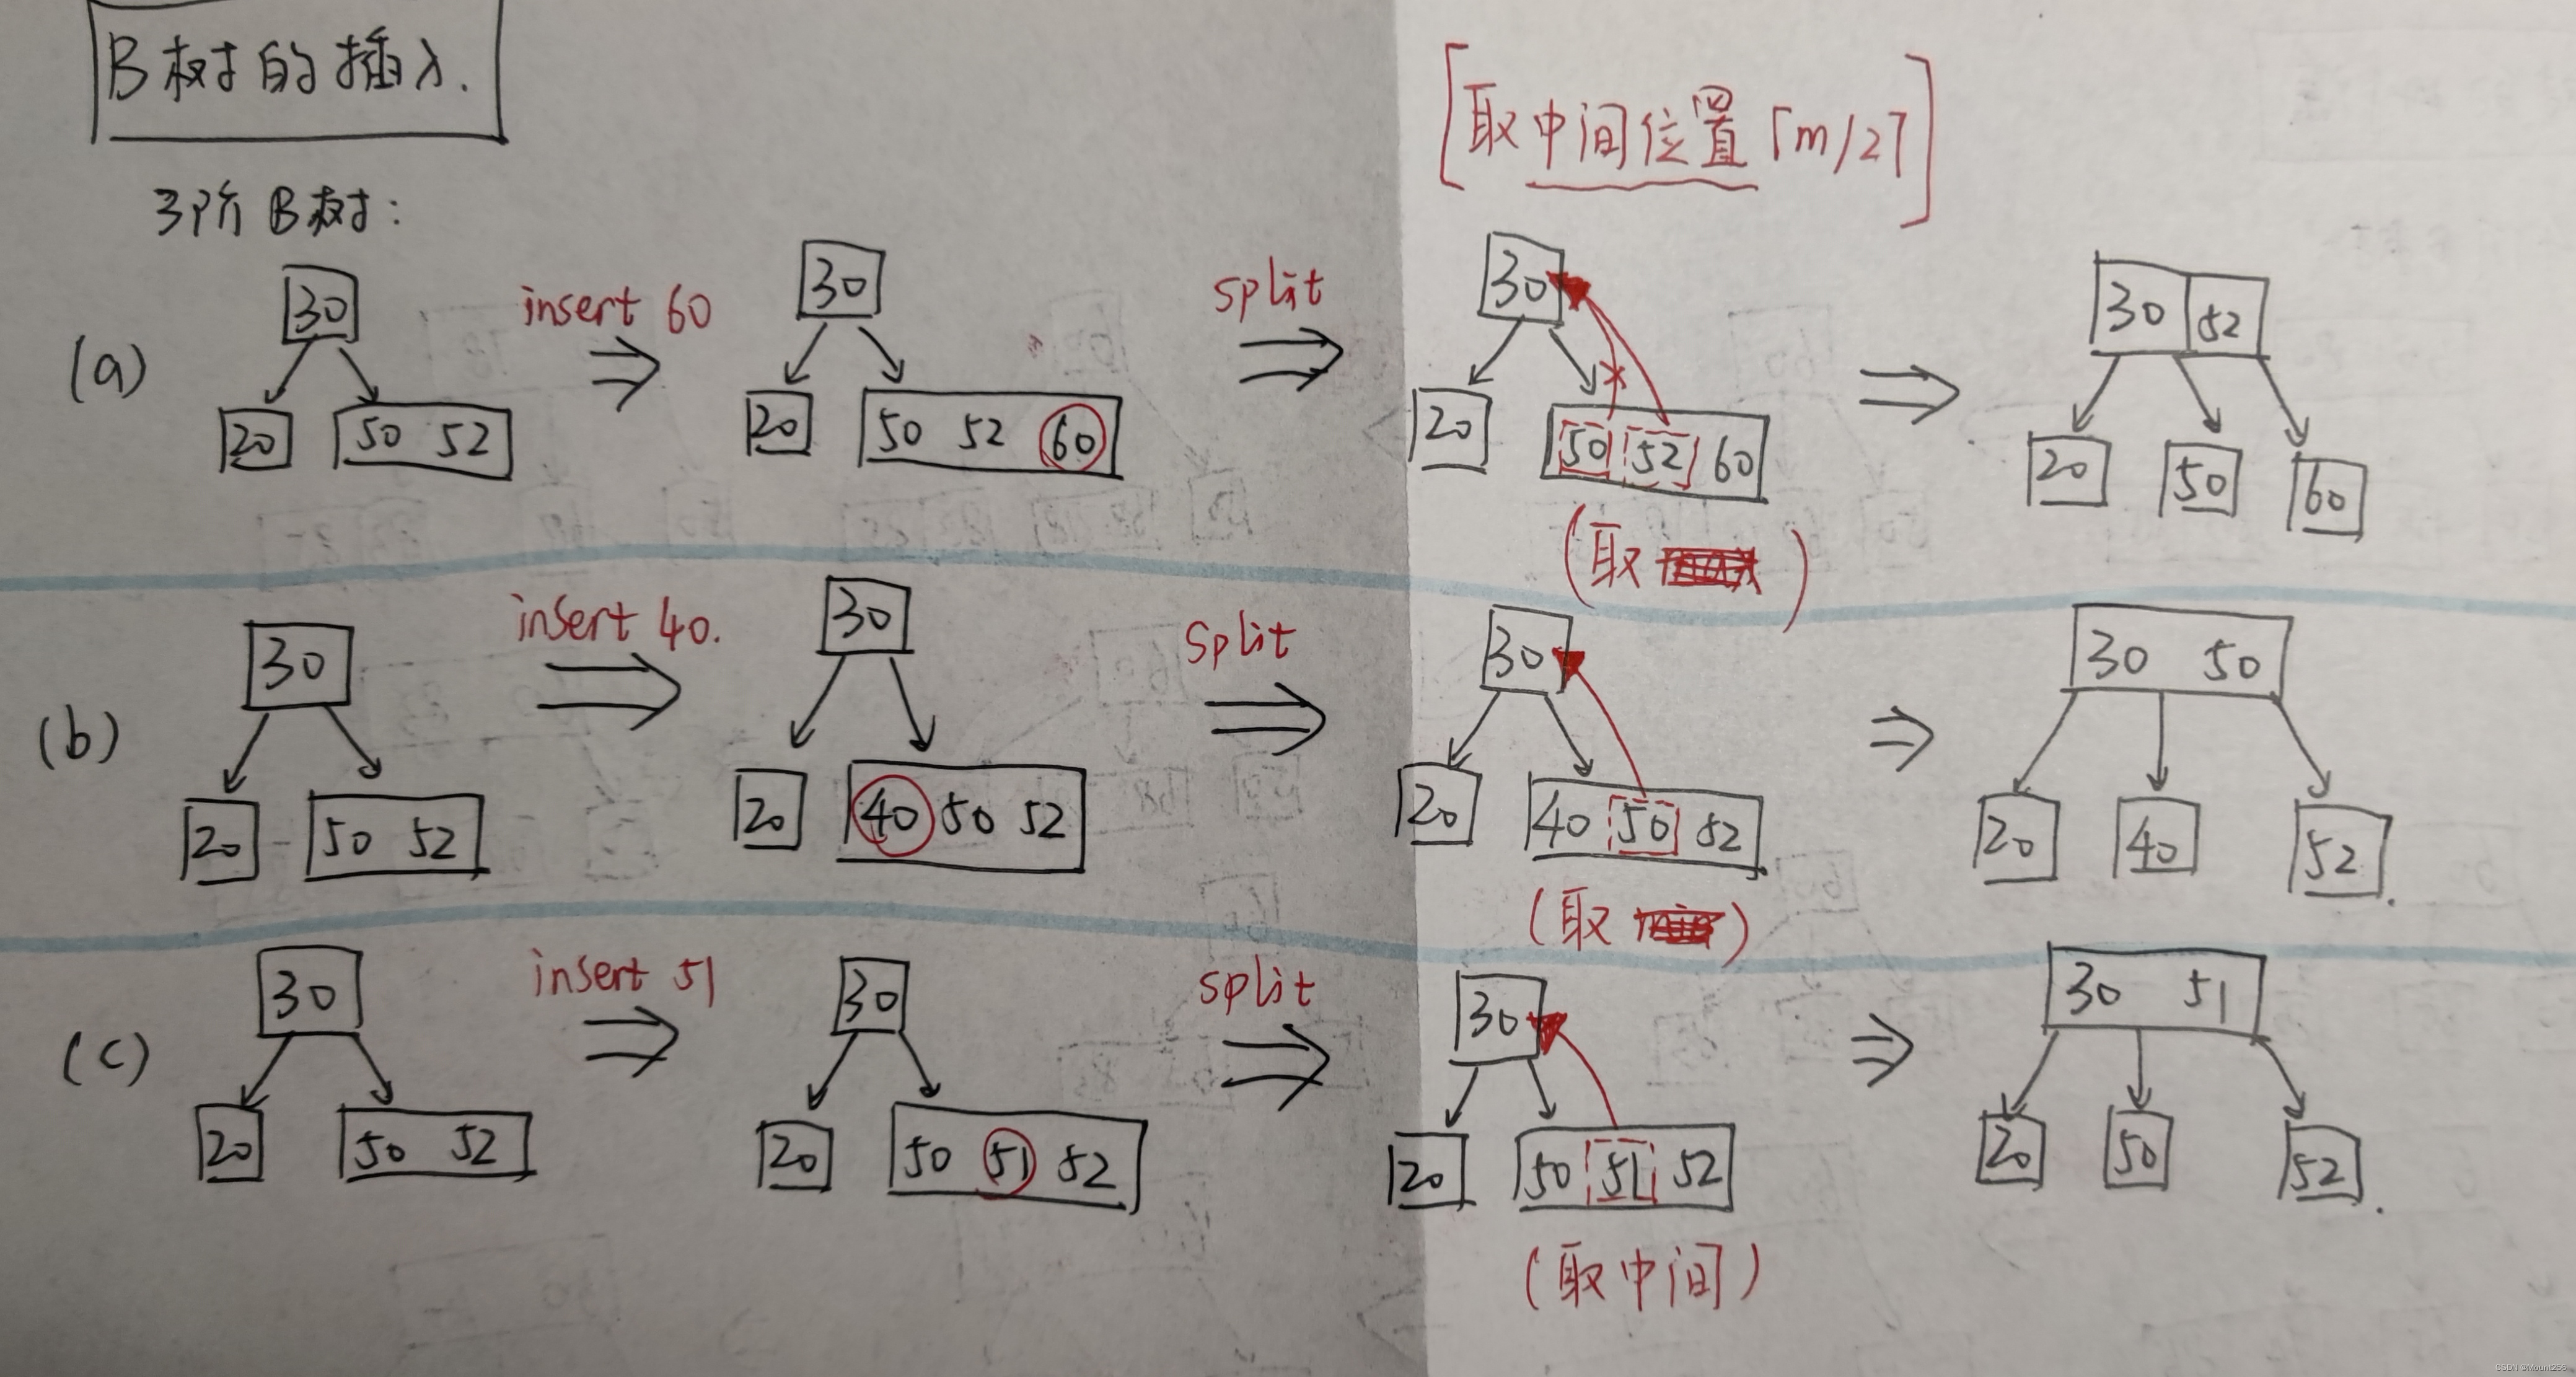 B树的插入.
[取中间位置⌈m/2⌉]
3阶B树:
(a)
30
20
50 52
insert 60
30
20
50 52 60
split
30
20
50 52 60
(取 )
30 52
20
50
60
(b)
30
20
50 52
insert 40.
30
20
40 50 52
split
30
20
40 50 52
(取 )
30 50
20
40
52
(c)
30
20
50 52
insert 51
30
20
50 51 52
split
30
20
50 51 52
(取中间)
30 51
20
50
52
CSDN @Mount256